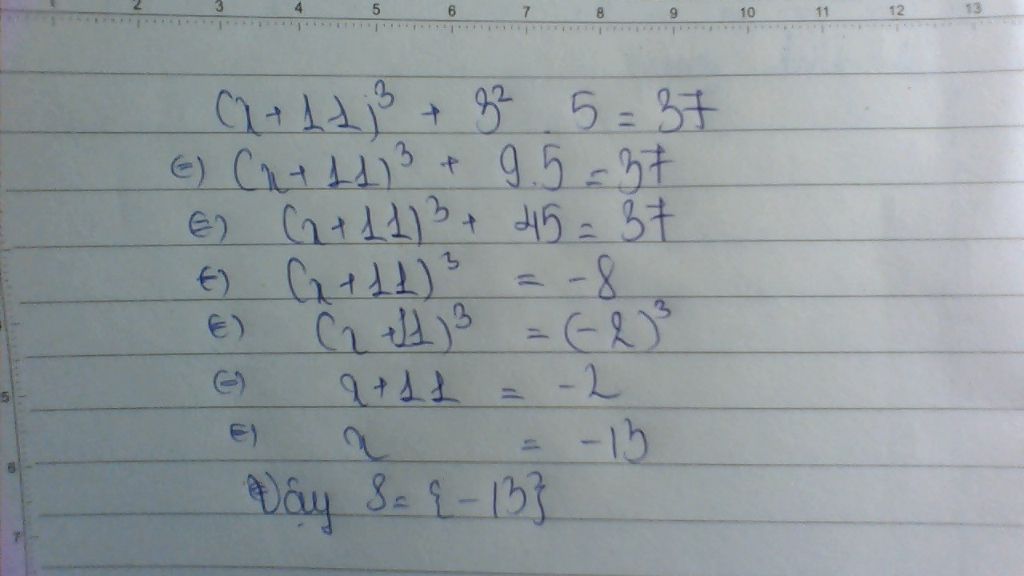 1 2 3 4 5 6 7 8 9 10 11 12 13
(x+11)³ + 3² . 5 = 37
⇔ (x+11)³ + 9.5 = 37
⇔ (x+11)³ + 45 = 37
⇔ (x+11)³ = -8
⇔ (x+11)³ = (-2)³
⇔ x+11 = -2
⇔ x = -13
Vậy S = {-13}
5
6
7